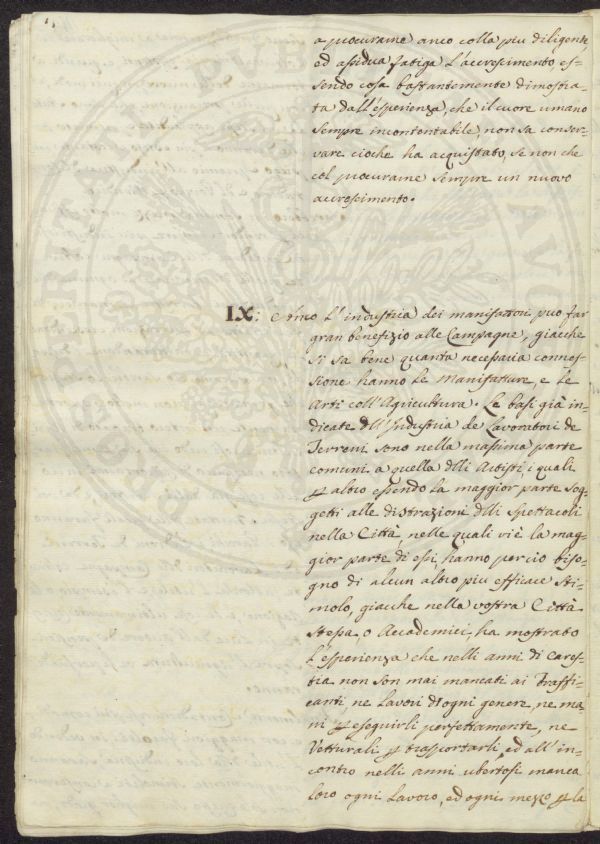 a procurarne anco colla piu diligente,
ed assidua fatiga l'accrescimento, es-
sendo cosa bastantemente dimostra-
ta dall'esperienza, che il cuore umano
sempre incontentabile, non sa conser-
vare cioche ha acquistato, se non che
col procurarne sempre un nuovo
accrescimento.
IX: Anco l'industria dei manifattori può far
gran benefizio alle Campagne, giacche
si sa bene quanta necessaria connes-
sione hanno le Manifatture, e le
Arti coll'Agricultura. Le basi già in-
dicate dell'Industria de Lavoratori de
Terreni sono nella massima parte
comuni a quella delli Artisti, i quali
p altro essendo la maggior parte sog-
getti alle distrazioni delli Spettacoli
nella Città, nelle quali vi è la mag-
gior parte di essi, hanno percio biso-
gno di alcun altro piu efficace sti-
molo, giacche nella vostra Città
stessa, o Accademici, ha mostrato
l'esperienza che nelli anni di Cares-
tia non son mai mancati ai Traffi-
canti, ne lavori d'ogni genere, ne ma-
ni p eseguirli perfettamente, ne
Vetturali p trasportarli, ed all'in-
contro nelli anni ubertosi manca
loro ogni lavoro, ed ogni mezzo p la